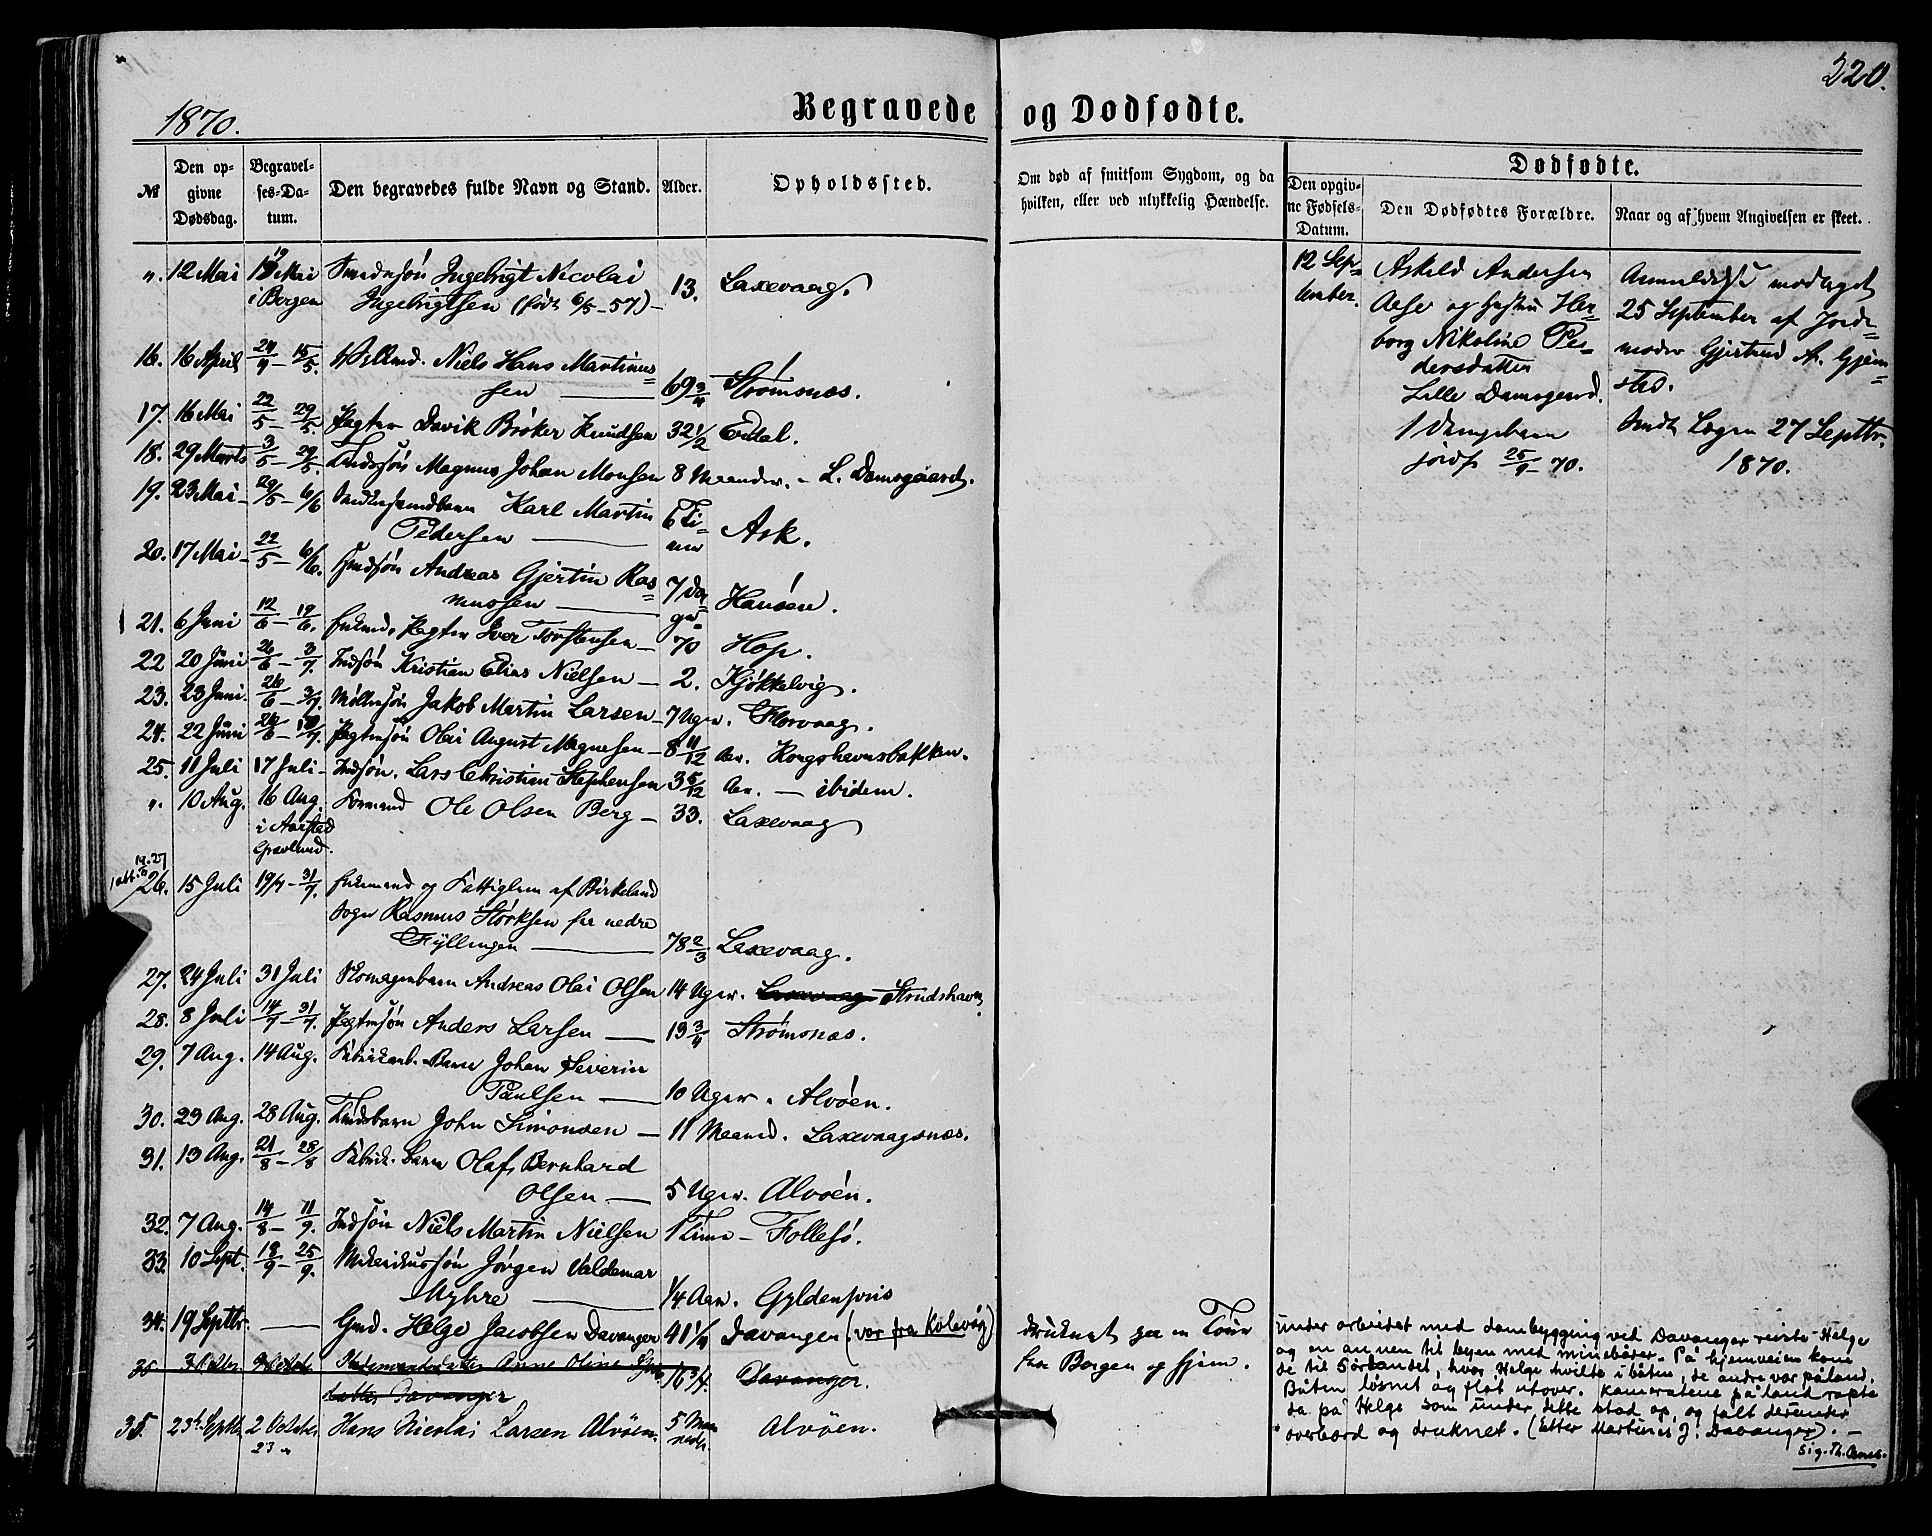 320.
1870.
Begravede og Dødfødte.
№
Den opgivne Dødsdag.
Begravelses-Datum.
Den begravedes fulde Navn og Stand.
Alder.
Opholdssted.
Om død af smitsom Sygdom, og da hvilken, eller ved ulykkelig Hændelse.
Dødfødte.
Den opgivne Fødsels-Datum.
Den Dødfødtes Forældre.
Naar og af hvem Angivelsen er skeet.
". 12 Mai 19 Mai Ingebrigt Nicolai
i Bergen Ingebrigtsen (født 6/5-57) - 13. Laxevaag.
16. 16 April 24/4 - 15/5. Niels Hans Martinus=
sen 69 3/4 Strømsnæs.
17. 16 Mai 22/5 - 29/5. Pagter Davik Brøker Knudsen 32 1/2 Eidal.
18. 29 Marts 3/5 - 29/5. Magnus Johan Monsen 8 Maander. - L. Damsgaard.
19. 23 Mai - 29/5 - 6/6 Karl Martin
Pedersen 6 Ti-
mer Ask.
20. 17 Mai - 22/5 - 6/6. Andreas Gjertin Ras=
mussen 7 Da=
ge Hanøen.
21. 6 Juni 12/6 - 19/6. Pagter Iver Torstensen - 70 Hop.
22 20 Juni 26/6 - 3/7. Indsøn Kristian Elias Nielsen - 2. Kjøkkelvig.
23. 23 Juni. 26/6 - 3/7. Møllersøn Jakob Martin Larsen - 7 Uger. Florvaag.
24. 22 Juni 26/6 - 10/7. Pagtersøn Olai August Magnesen - 8 11/12 Aar. Kongshavnsbakken.
25. 11 Juli 17 Juli - Indsøn. Lars Christian Stephensen 3 5/12 Aar. - ibidem.
". 10 Aug. 16 Aug. Formand Ole Olsen Berg - 33. Laxevaag
i Aarstad
Gravlund.
26. 15 Juli 19/7 - 31/7. Enkemand og Fattiglem af Birkeland
Sogn Rasmus Størksen fra nedre
Fyllingen 78 2/3 Laxevaag.
27. 24 Juli 31 Juli Andreas Olai Olsen 14 Uger. Laxevaag Strudshavn
28. 8 Juli 17/7 - 31/7. Pagtersøn Anders Larsen 13 3/4 Strømsnæs.
29. 7 Aug. 14 Aug. Fabrikarb. Barn Johan Severin
Paulsen 10 Uger. Alvøen.
30. 23 Aug. 28 Aug. John Simonsen - 11 Maaned. Laxevaagsnæs.
31. 13 Aug. 21/8 - 28/8 Fabrik. Barn Olaf Bernhard
Olsen 5 Uger. Alvøen.
32. 7 Aug. 14/8 - 11/9. Indsøn Niels Martin Nielsen 1 Time - Follesø.
33. 10 Sept. 18/9 - 25/9. Jørgen Valdemar
Myhre 1/4 Aar. Gyldenpris
34. 19 Septbr. Gmd. Helge Jacobsen Davanger 41 1/4 Davanger (var fra Kolevåg)
35 Anne Oline
datter Davanger 16 3/4. Davanger.
35. 23de Septbr. 2 October Hans Nicolai Larsen Alvøen. 5 Maa-
neder Alvøen.
23 "
druknet paa en Tour
fra Bergen og hjem.
12 Sep=
tember.
Askild Andersen
Aase og Hustru Her=
borg Nikoline Pe=
dersdatter
Lille Damsgaard.
1 Drengebarn
jordf. 25/9 70.
Anmeldelse modtaget
25 September af Jorde=
moder Gjertrud A. Gjem=
stad.
Sendt Lægen 27 Septbr.
1870.
under arbeidet med dambygging ved Davanger reiste Helge
og en annen til byen med minebåter. På hjemveien kom
de til Sørlandet, hvor Helge hvilte i båten, de andre var på land.
Båten løsnet og fløt utover. Kameratene på land ropte
da på Helge som under dette stod op, og falt derunder
overbord og druknet. (Etter Martines J. Davanger). -
sig. Th.